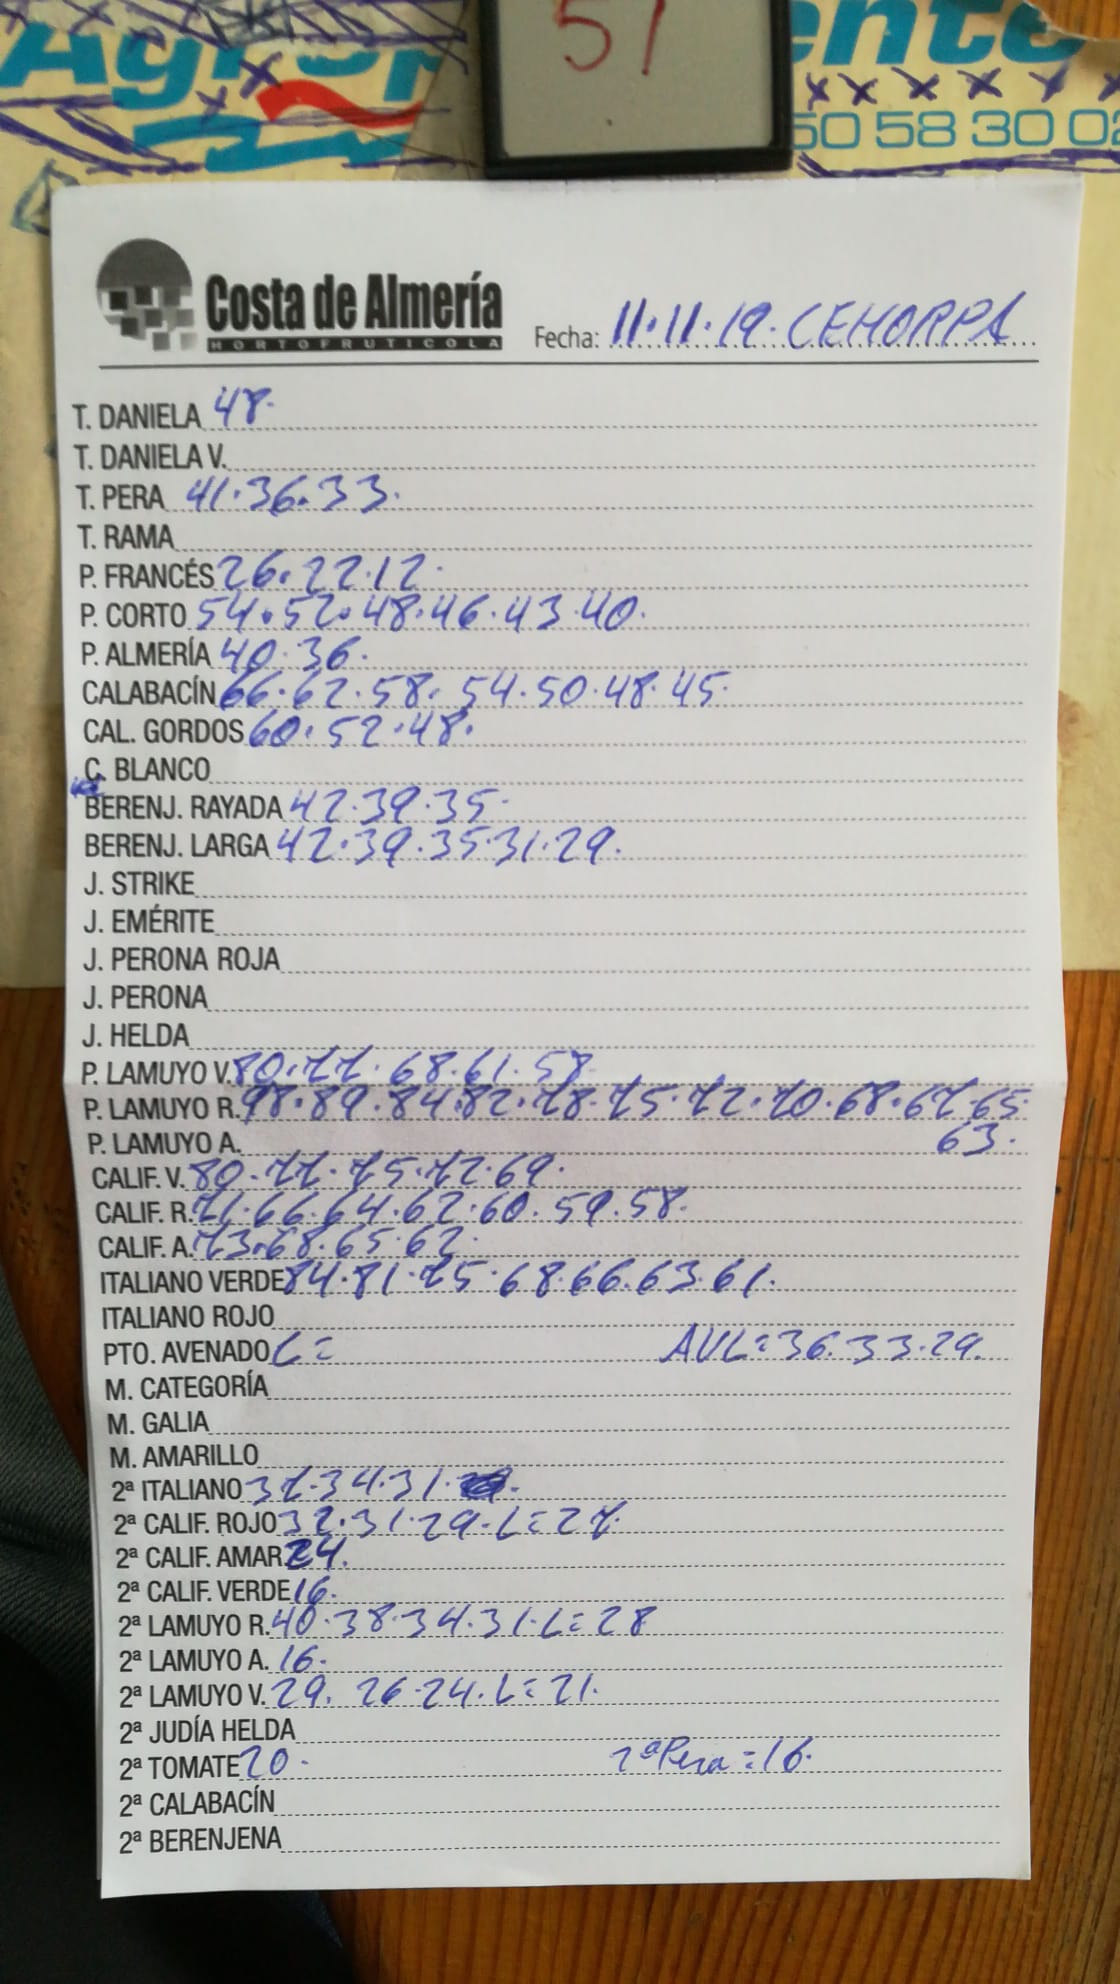 51
50 58 30 02
Costa de Almería
HORTOFRUTICOLA
Fecha: 11.11.19. CEHORPA
T. DANIELA 48.
T. DANIELA V.
T. PERA 41.36.33.
T. RAMA
P. FRANCÉS 26.22.12.
P. CORTO 54.52.48.46.43.40.
P. ALMERÍA 40.36.
CALABACÍN 66.62.58.54.50.48.45.
CAL. GORDOS 60.52.48.
C. BLANCO
BERENJ. RAYADA 42.39.35.
BERENJ. LARGA 42.39.35.31.29.
J. STRIKE
J. EMÉRITE
J. PERONA ROJA
J. PERONA
J. HELDA
P. LAMUYO V. 80.77.68.61.58
P. LAMUYO R. 98.89.84.82.78.75.72.70.68.67.65
P. LAMUYO A. 63.
CALIF. V. 80.77.75.72.69.
CALIF. R. 71.66.64.62.60.59.58.
CALIF. A. 73.68.65.62.
ITALIANO VERDE 84.81.75.68.66.63.61.
ITALIANO ROJO
PTO. AVENADO L= AVL=36.33.29.
M. CATEGORÍA
M. GALIA
M. AMARILLO
2ª ITALIANO 37.34.31.
2ª CALIF. ROJO 32.31.29.L=27.
2ª CALIF. AMAR. 24.
2ª CALIF. VERDE 16.
2ª LAMUYO R. 40.38.34.31.L=28
2ª LAMUYO A. 16.
2ª LAMUYO V. 29.26.24.L=21.
2ª JUDÍA HELDA
2ª TOMATE 20. 2ªPera=16.
2ª CALABACÍN
2ª BERENJENA